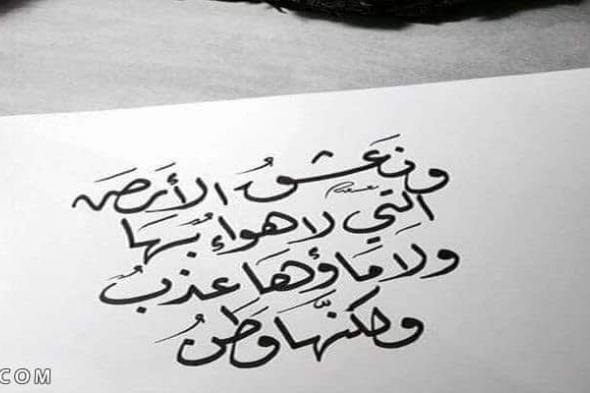 ونَعَشقُ الأرضَ
التي لا هواءٌ بهَا
ولاَ مَاؤهَا عذبٌ
ولكنّهَا وطَنُ
COM